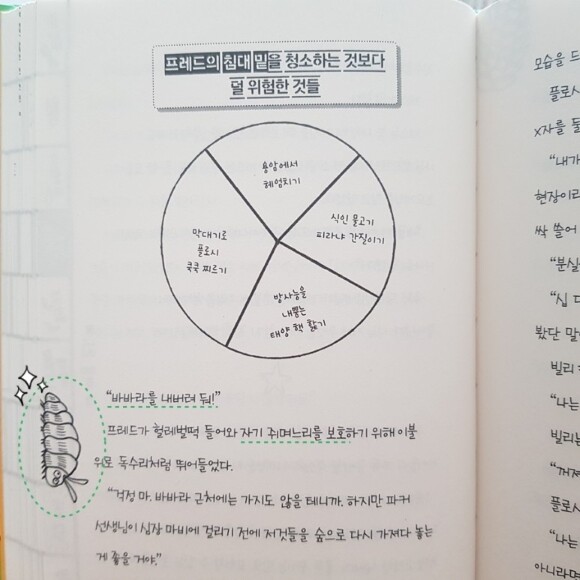 프레드의 침대 밑을 청소하는 것보다
덜 위험한 것들
용암에서
헤엄치기
식인 물고기
피라냐 간질이기
막대기로
플로시
쿡쿡 찌르기
방사능을
내뿜는
태양 핵 핥기
“바바라를 내버려 둬!”
프레드가 헐레벌떡 들어와 자기 쥐며느리를 보호하기 위해 이불
위로 독수리처럼 뛰어들었다.
“걱정 마. 바바라 근처에는 가지도 않을 테니까. 하지만 파커
선생님이 심장 마비에 걸리기 전에 저것들을 숲으로 다시 가져다 놓는
게 좋을 거야.”
모습을 드
플로시
x자를 둘
“내가
현장이라
싹 쓸어
“분실
“십 대
봤단 말
빌리
“나는
빌리는
“꺼져
플로시
“나는
아니라면